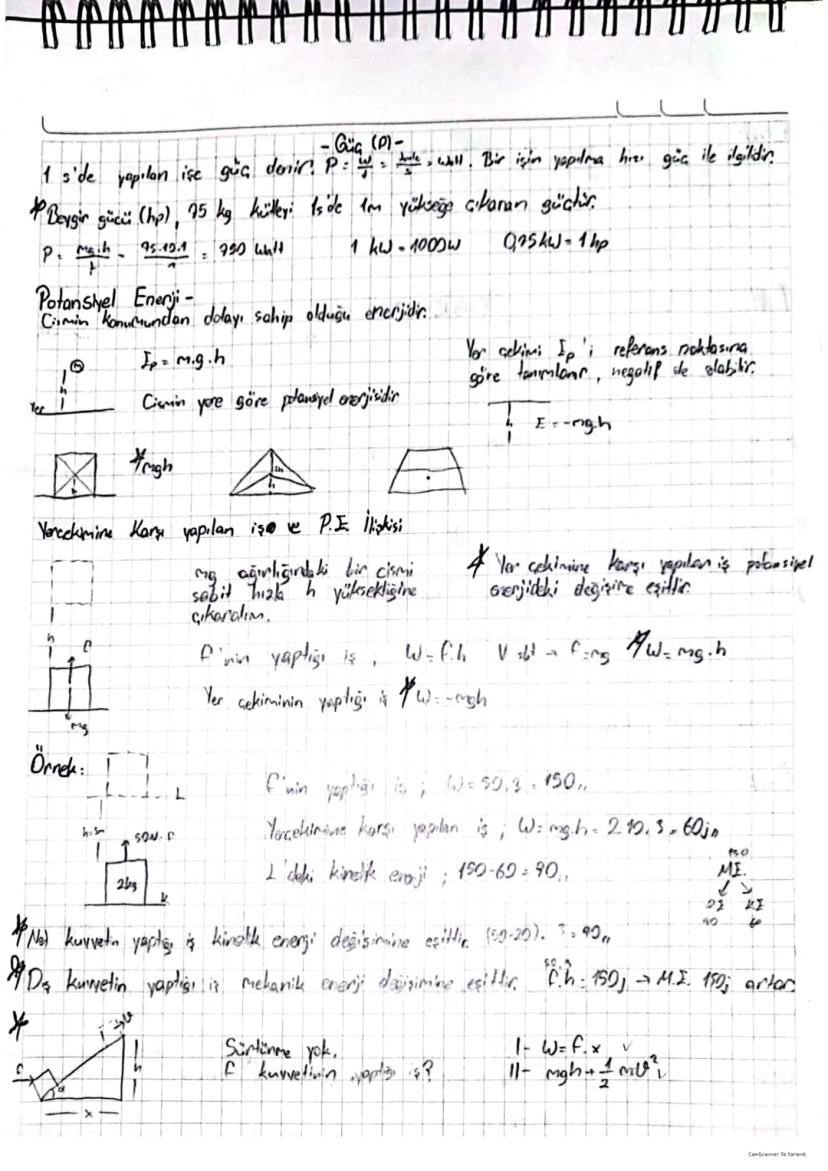 - Güç (P) -
1 s'de yapılan işe güç denir. P = W/t = Joule/s = Watt. Bir işin yapılma hızı güç ile ilgilidir.
* Beygir gücü (hp), 75 kg kütleyi 1s'de 1m yükseğe çıkaran güçtür.
P = mg.h/t = 75.10.1/1 = 750 Watt 1 kW = 1000W 0,75kW = 1hp
Potansiyel Enerji -
Cismin konumundan dolayı sahip olduğu enerjidir.
Ep = m.g.h
Yer çekimi Ep'i referans noktasına
göre tanımlanır, negatif de olabilir.
h
Yer
Cismin yere göre potansiyel enerjisidir
h E = -mg.h
* mgh
h
h
Yerçekimine Karşı yapılan iş ve P.E İlişkisi
mg ağırlığındaki bir cismi
sabit hızla h yüksekliğine
çıkaralım.
* Yer çekimine karşı yapılan iş potansiyel
enerjideki değişime eşittir.
h
F
F'nin yaptığı iş, W = F.h V sbt → F = mg * W = mg.h
Yer çekiminin yaptığı iş * W = -mgh
mg
Örnek:
L
F'nin yaptığı iş ; W = 50.3 = 150 "
h=3m
50N = F
Yerçekimine karşı yapılan iş ; W = mg.h = 2.10.3 = 60j "
2kg
K
L'deki kinetik enerji ; 150-60 = 90 "
150
M.E.
P.E K.E
90 60
* Net kuvvetin yaptığı iş kinetik energi değişimine eşittir. (50-20). 3 = 90 "
* Dış kuvvetin yaptığı iş mekanik enerji değişimine eşittir. F.h = 150j → M.E. 150j artar.
50.3
*
V
F
α
h
x
Sürtünme yok,
F kuvvetinin yaptığı iş?
I- W = F.x ✓
II- mgh + 1/2 mV² ✓
CamScanner ile tarandı